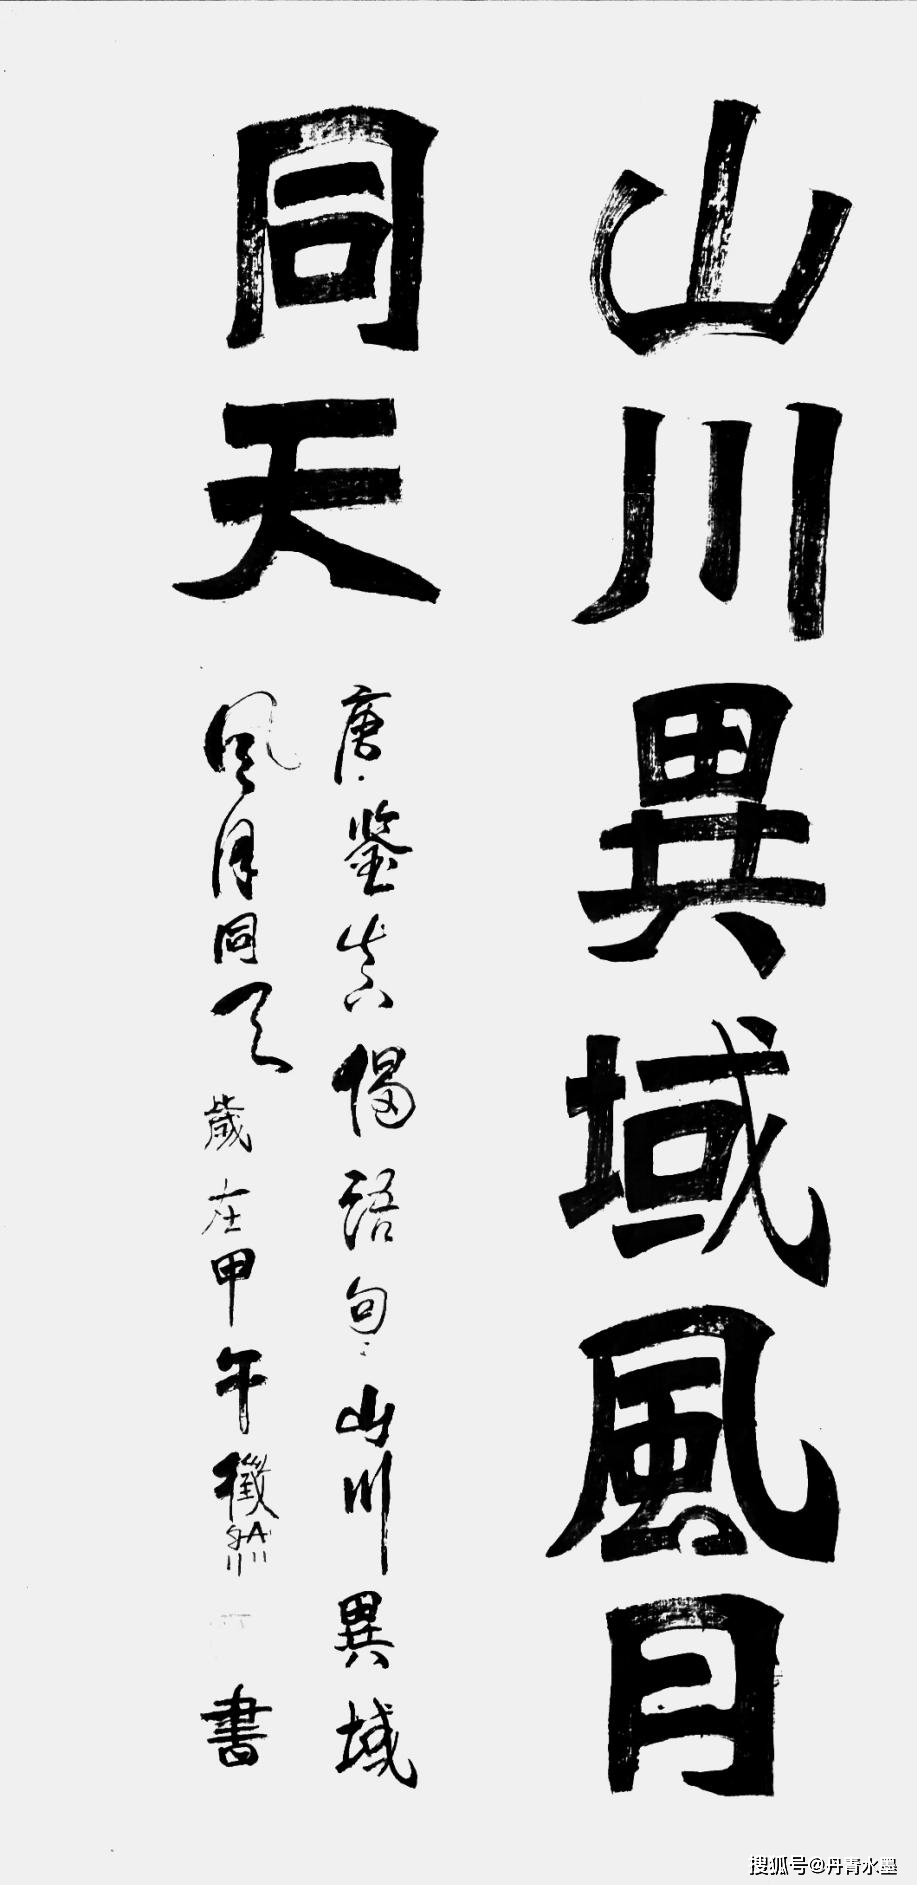 山川異域風月
同天
唐鉴真偈語句山川異域
風月同天歲在甲午書
搜狐号@丹青水墨